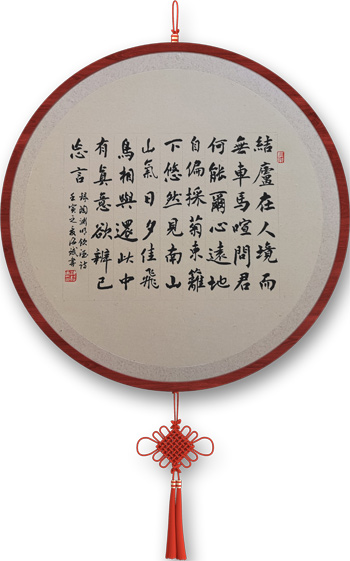 結廬在人境而
無車馬喧問君
何能爾心遠地
自偏採菊東籬
下悠然見南山
山氣日夕佳飛
鳥相與還此中
有真意欲辨已
忘言
陶淵明飲酒詩
壬寅之夏海書